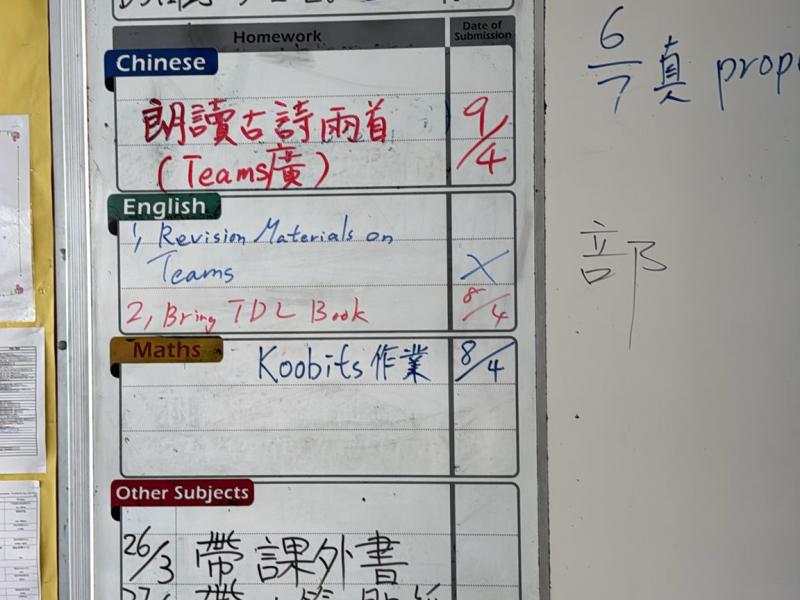 Homework
Date of Submission
Chinese
朗讀古詩兩首 9/4
(Teams廣)
English
1, Revision Materials on
Teams X
2, Bring TDL Book 8/4
Maths
Koobits 作業 8/4
Other Subjects
26/3 帶課外書
6/7 真 prop
部